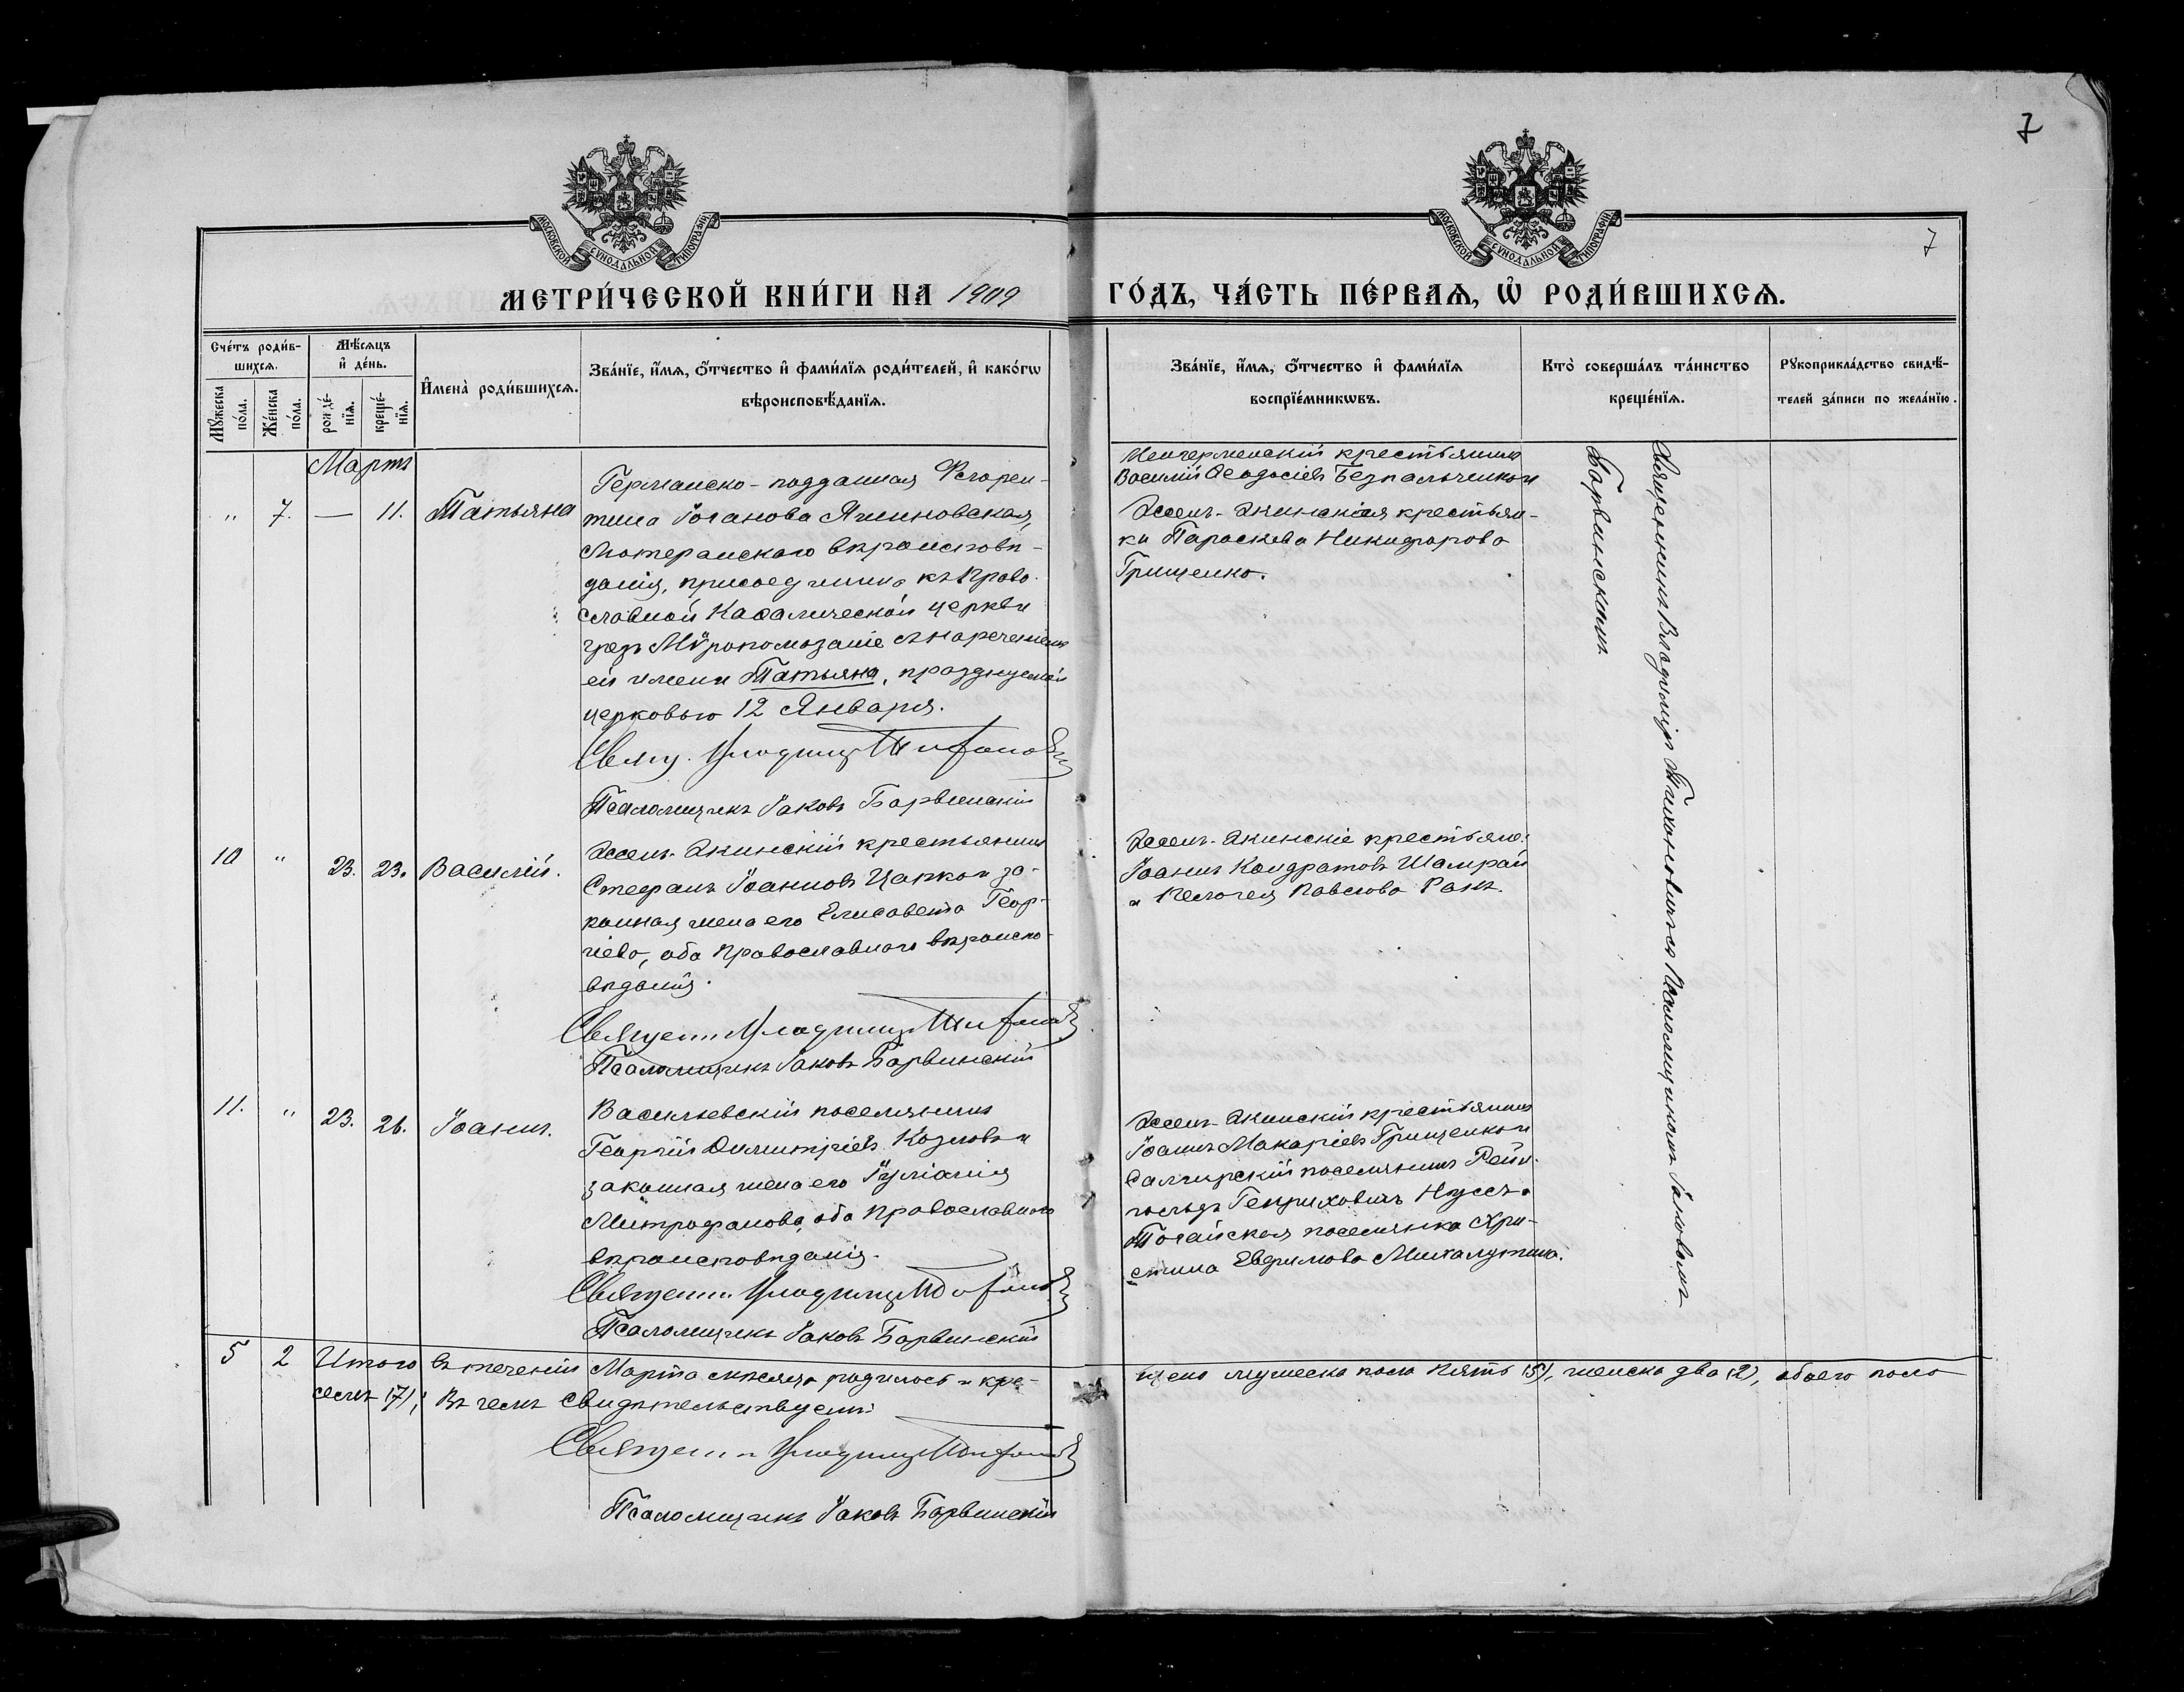 7
7
МОСКОВСКОЙ СУНОДАЛЬНОЙ ТИПОГРАФІИ
МОСКОВСКОЙ СУНОДАЛЬНОЙ ТИПОГРАФІИ
МЕТРИ́ЧЕСКОЙ КНИ́ГИ НА 1909
ГО́ДЪ, ЧА́СТЬ ПЕ́РВАѦ, Ѡ҆ РОДИ́ВШИХСѦ.
Сче́тъ роди́в-
шихсѧ.
Мѣ́сѧцъ
и҆ де́нь.
Мꙋ́жеска
по́ла.
Же́нска
по́ла.
рожде́-
нїѧ.
креще́-
нїѧ.
И҆мена̀ роди́вшихсѧ.
Зва́нїе, и҆́мѧ, ѻ҆́тчество и҆ фами́лїѧ роди́телей, и҆ како́гѡ
вѣроисповѣ́данїѧ.
Зва́нїе, и҆́мѧ, ѻ҆́тчество и҆ фами́лїѧ
воспрїе́мникѡвъ.
Кто̀ соверша́лъ та́инство
креще́нїѧ.
Рꙋкоприкла́дство свидѣ́-
телей за́писи по жела́нїю.
Мартъ
" 7. — 11. Татьяна
Германско-подданная Флорен-
тина Іоганова Ячиновская,
Лютеранскаго вѣроисповѣ-
данія, присоединина къ Право-
славной Каѳолической церкви
чрезъ Мѵропомазаніе съ нареченіемъ
ей имени Татьяна, празднуемой
церковью 12 Января.
Свящ. Владимір Тихонович
Псаломщикъ Іаковъ Барвинскій
крестьянинъ
Василій Ѳеодосіевъ Безпальченко и
Джен-Экинская крестьян-
ка Параскева Никифорова
Грищенко.
Священникъ Владиміръ Тихоновичъ съ Псаломщикомъ Іаковомъ
Барвинскимъ.
10 " 23. 23. Василій.
Экинскій крестьянинъ
Стефанъ Іоанновъ Цапко и за-
конная жена его Елисавета Геор-
гіева, оба Православнаго вѣроиспо-
вѣданія.
Священ. Владимір Тихонович
Псаломщикъ Іаковъ Барвинскій
Экинскіе крестьяне:
Іоаннъ Кондратовъ Шамрай
и Пелагея Павлова Ракъ.
11. " 23. 26. Іоаннъ.
Васильевскій поселянинъ
Георгій Димитріевъ Козловъ и
законная жена его Іуліанія
Митрофанова, оба Православнаго
вѣроисповѣданія.
Священн. Владимір Тихонович
Псаломщикъ Іаковъ Барвинскій
Экинскій крестьянинъ
Іоаннъ Макаріевъ Грищенко и
поселянинъ Рейн-
гольдъ Генриховичъ Нуссъ и
поселянка Хри-
стина Евфимова Михалутина.
5 2 Итого въ теченіи Марта мѣсяца родилось и кре-
щено мужеска пола пять (5), женска два (2), обоего пола
семь (7); Въ чемъ свидѣтельствуемъ:
Священн. Владимір Тихонович
Псаломщикъ Іаковъ Барвинскій